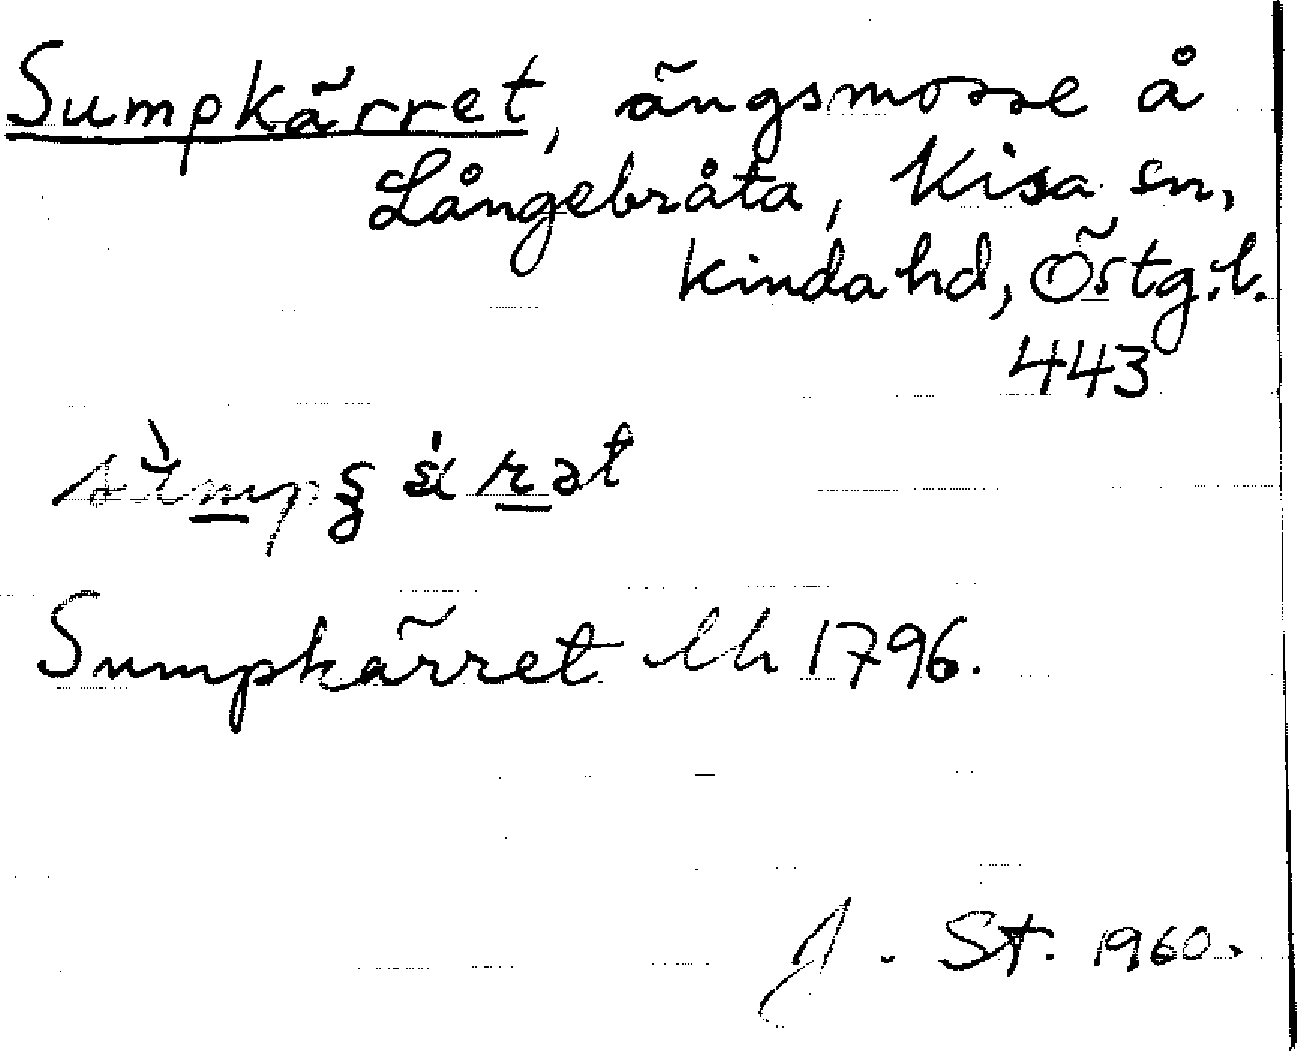 Sumpkärret, ängsmosse å
Långebråta, Kisa sn,
Kinda hd, Östg.l.
443
Sumpkärret lh 1796.
J. St. 1960.